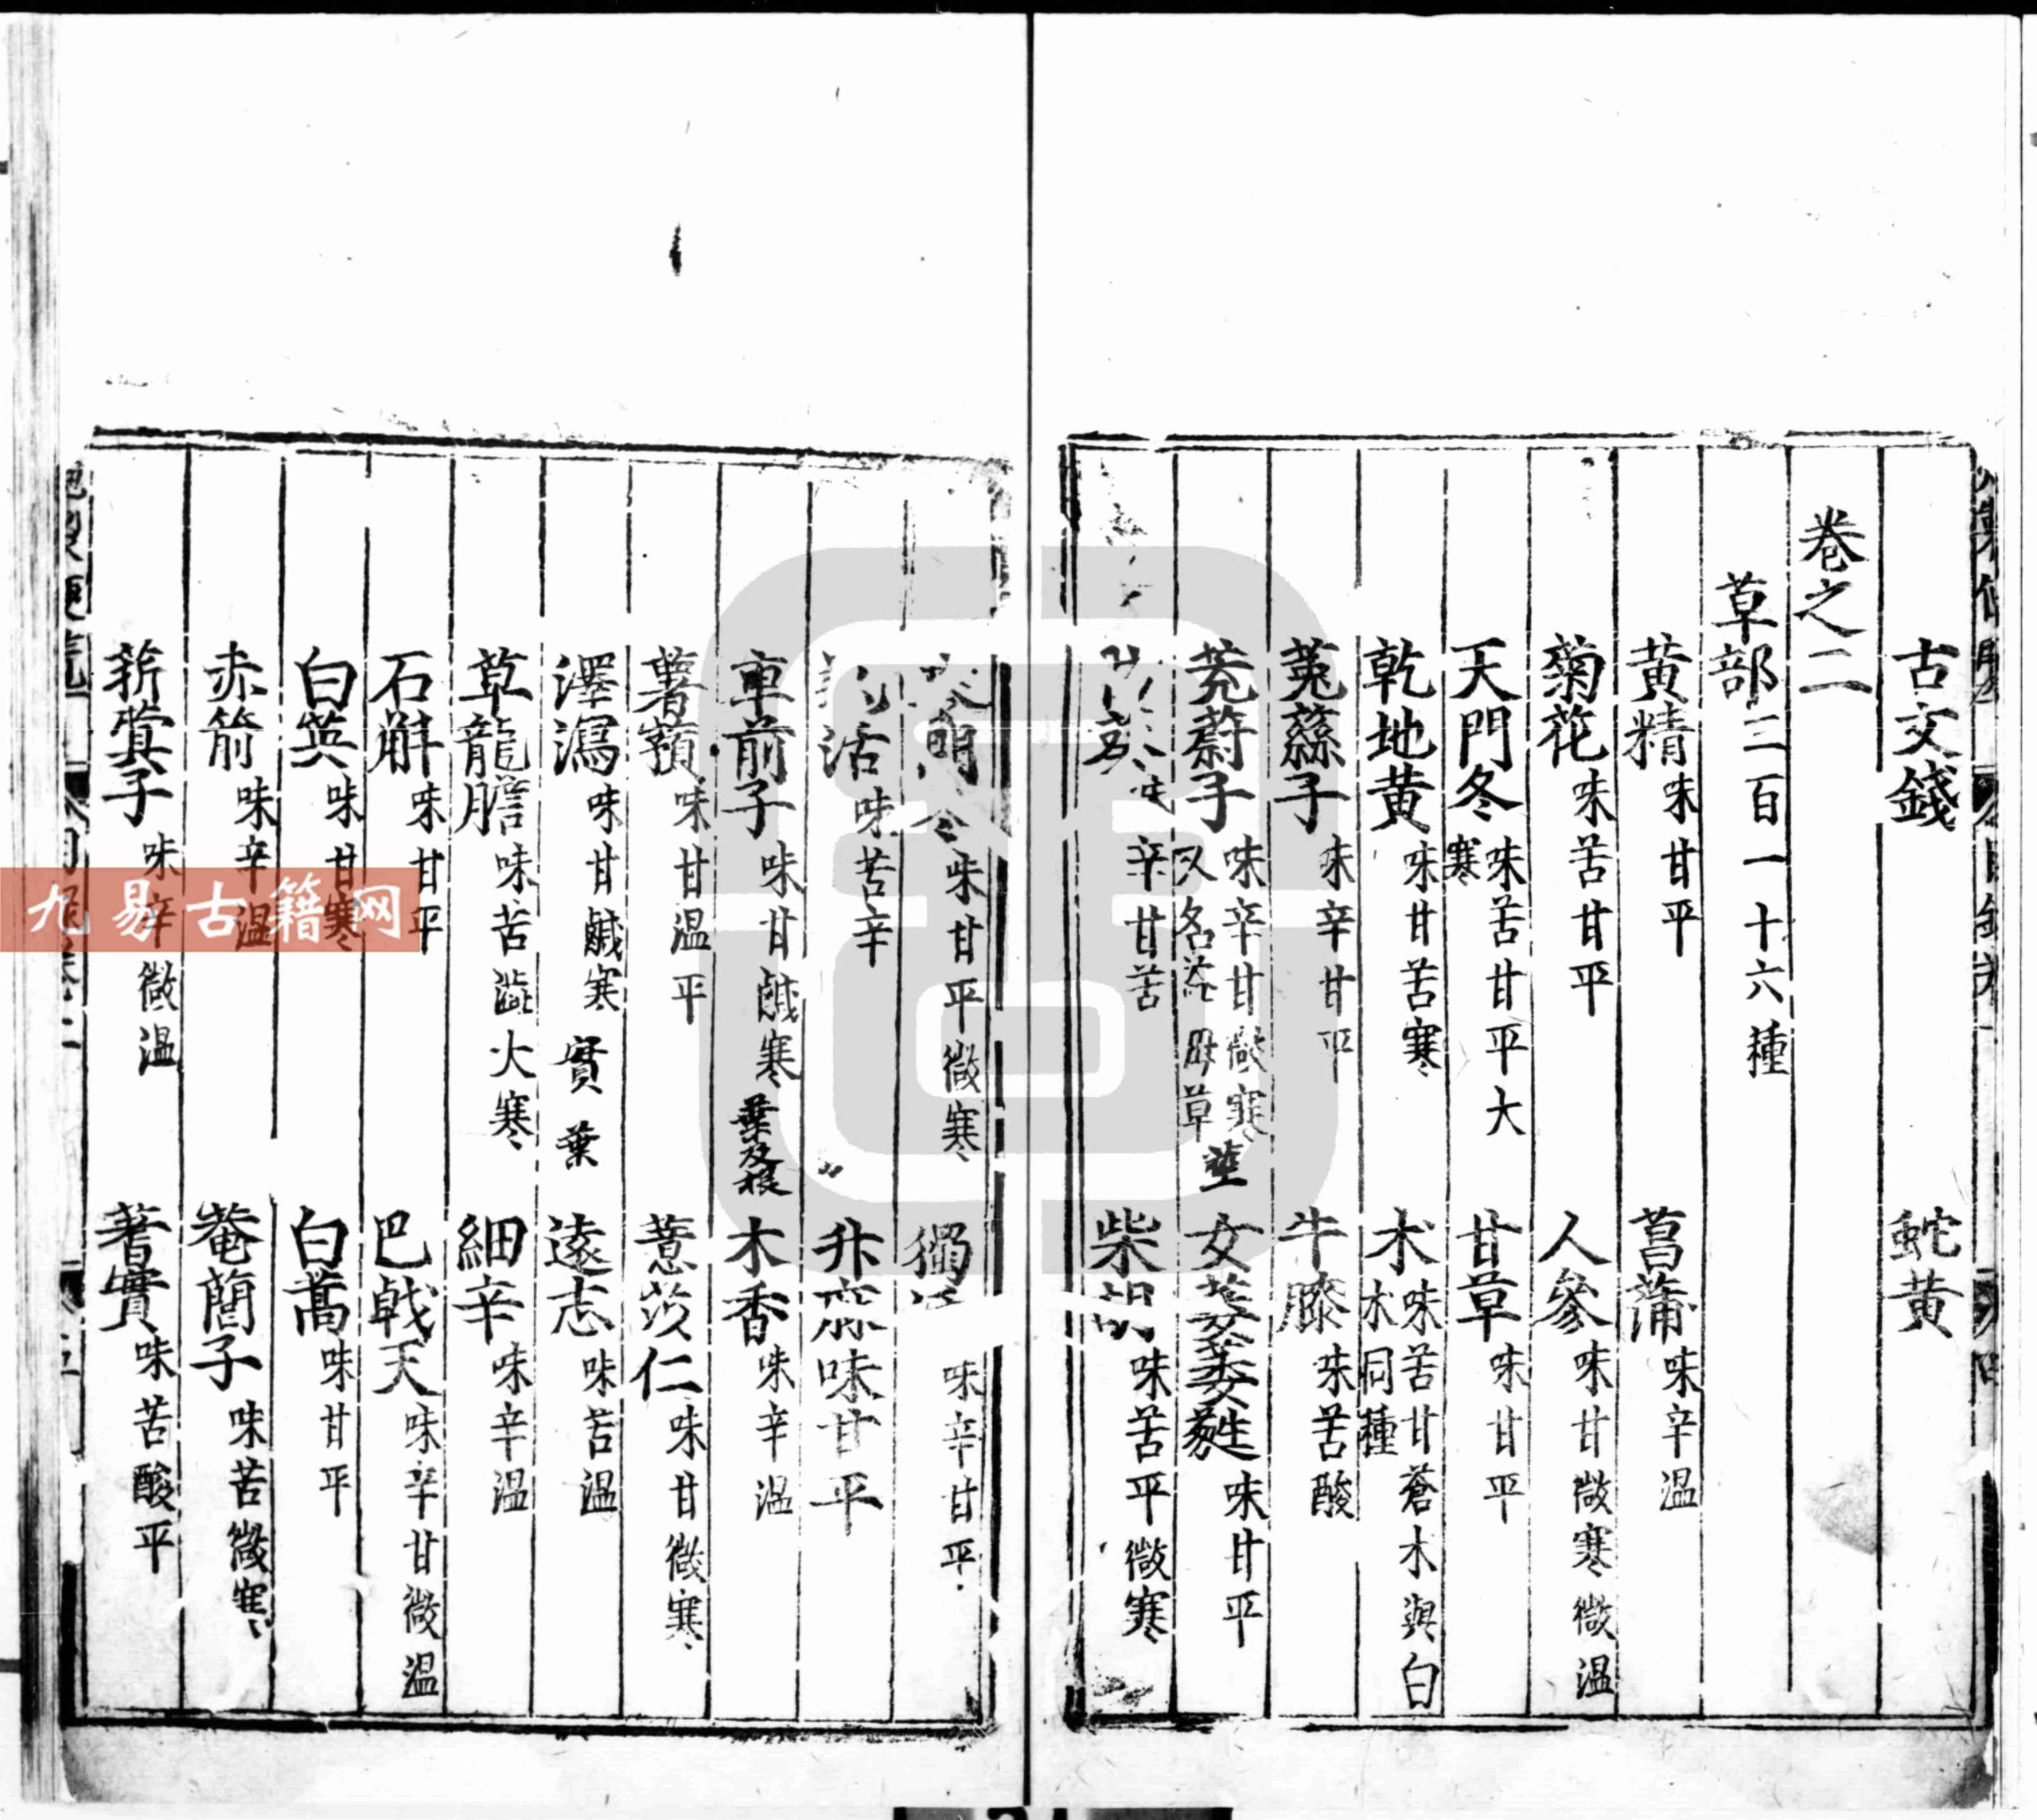 古文錢　蛇黃
卷之二
草部二百一十六種
黃精味甘平　菖蒲味辛溫
菊花味苦甘平　人參味甘微寒微溫
天門冬味苦甘平大寒　甘草味甘平
乾地黃味甘苦寒　木味苦甘蒼木與白木同種
菟䕷子味辛甘平　牛膝味苦酸
茺蔚子味辛甘微寒又名益母草　莖　女萎萎蕤味甘平
味辛甘苦　柴胡味苦平微寒
門冬味甘平微寒　獨　味辛甘平
活味苦辛　升麻味甘平
車前子味甘鹹寒　葉及根　木香味辛溫
薯蕷味甘溫平　薏苡仁味甘微寒
澤瀉味甘鹹寒　實　葉　遠志味苦溫
草龍膽味苦澁大寒　細辛味辛溫
石斛味甘平　巴戟天味辛甘微溫
白英味甘寒　白蒿味甘平
赤箭味辛溫　菴䕡子味苦微寒
菥蓂子味辛微溫　蓍實味苦酸平
九易古籍网